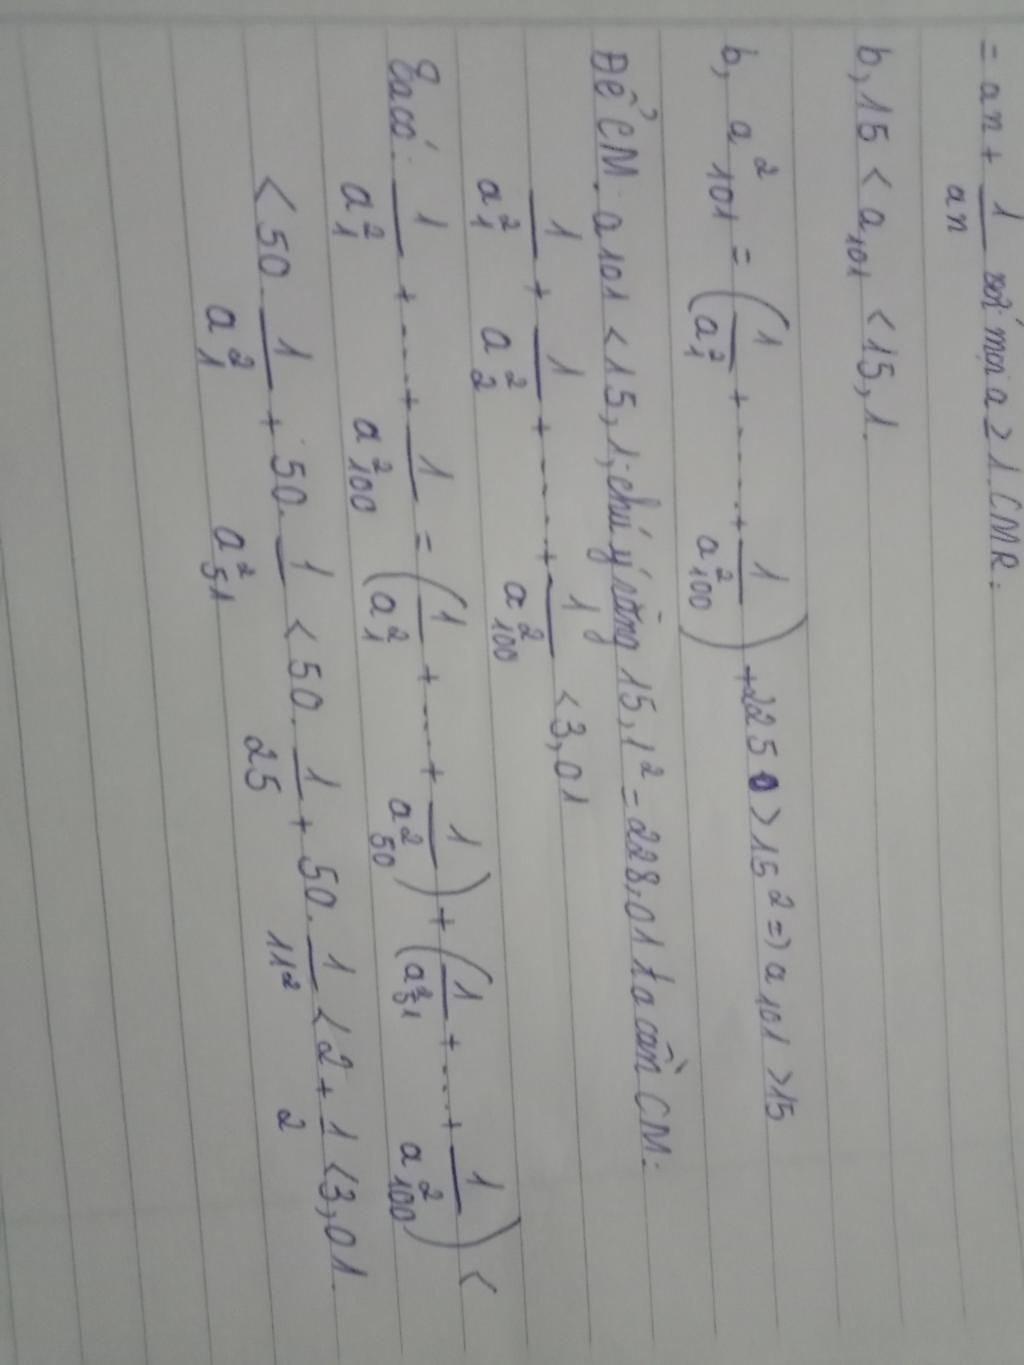 = an + 1/an với mọi a ≥ 1. CMR:
b, 15 < a₁₀₁ < 15,1.
b, a²₁₀₁ = (1/a²₁ + ..... + 1/a²₁₀₀) + 225 > 15² => a₁₀₁ > 15
Để CM. a₁₀₁ < 15,1; chú ý rằng 15,1² = 228,01 ta cần CM.
1/a²₁ + 1/a²₂ + ..... + 1/a²₁₀₀ < 3,01
Ta có. 1/a²₁ + .... + 1/a²₁₀₀ = (1/a²₁ + .... + 1/a²₅₀) + (1/a²₅₁ + .... + 1/a²₁₀₀) <
< 50. 1/a²₁ + 50. 1/a²₅₁ < 50. 1/25 + 50. 1/11² < 2 + 1/2 < 3,01.